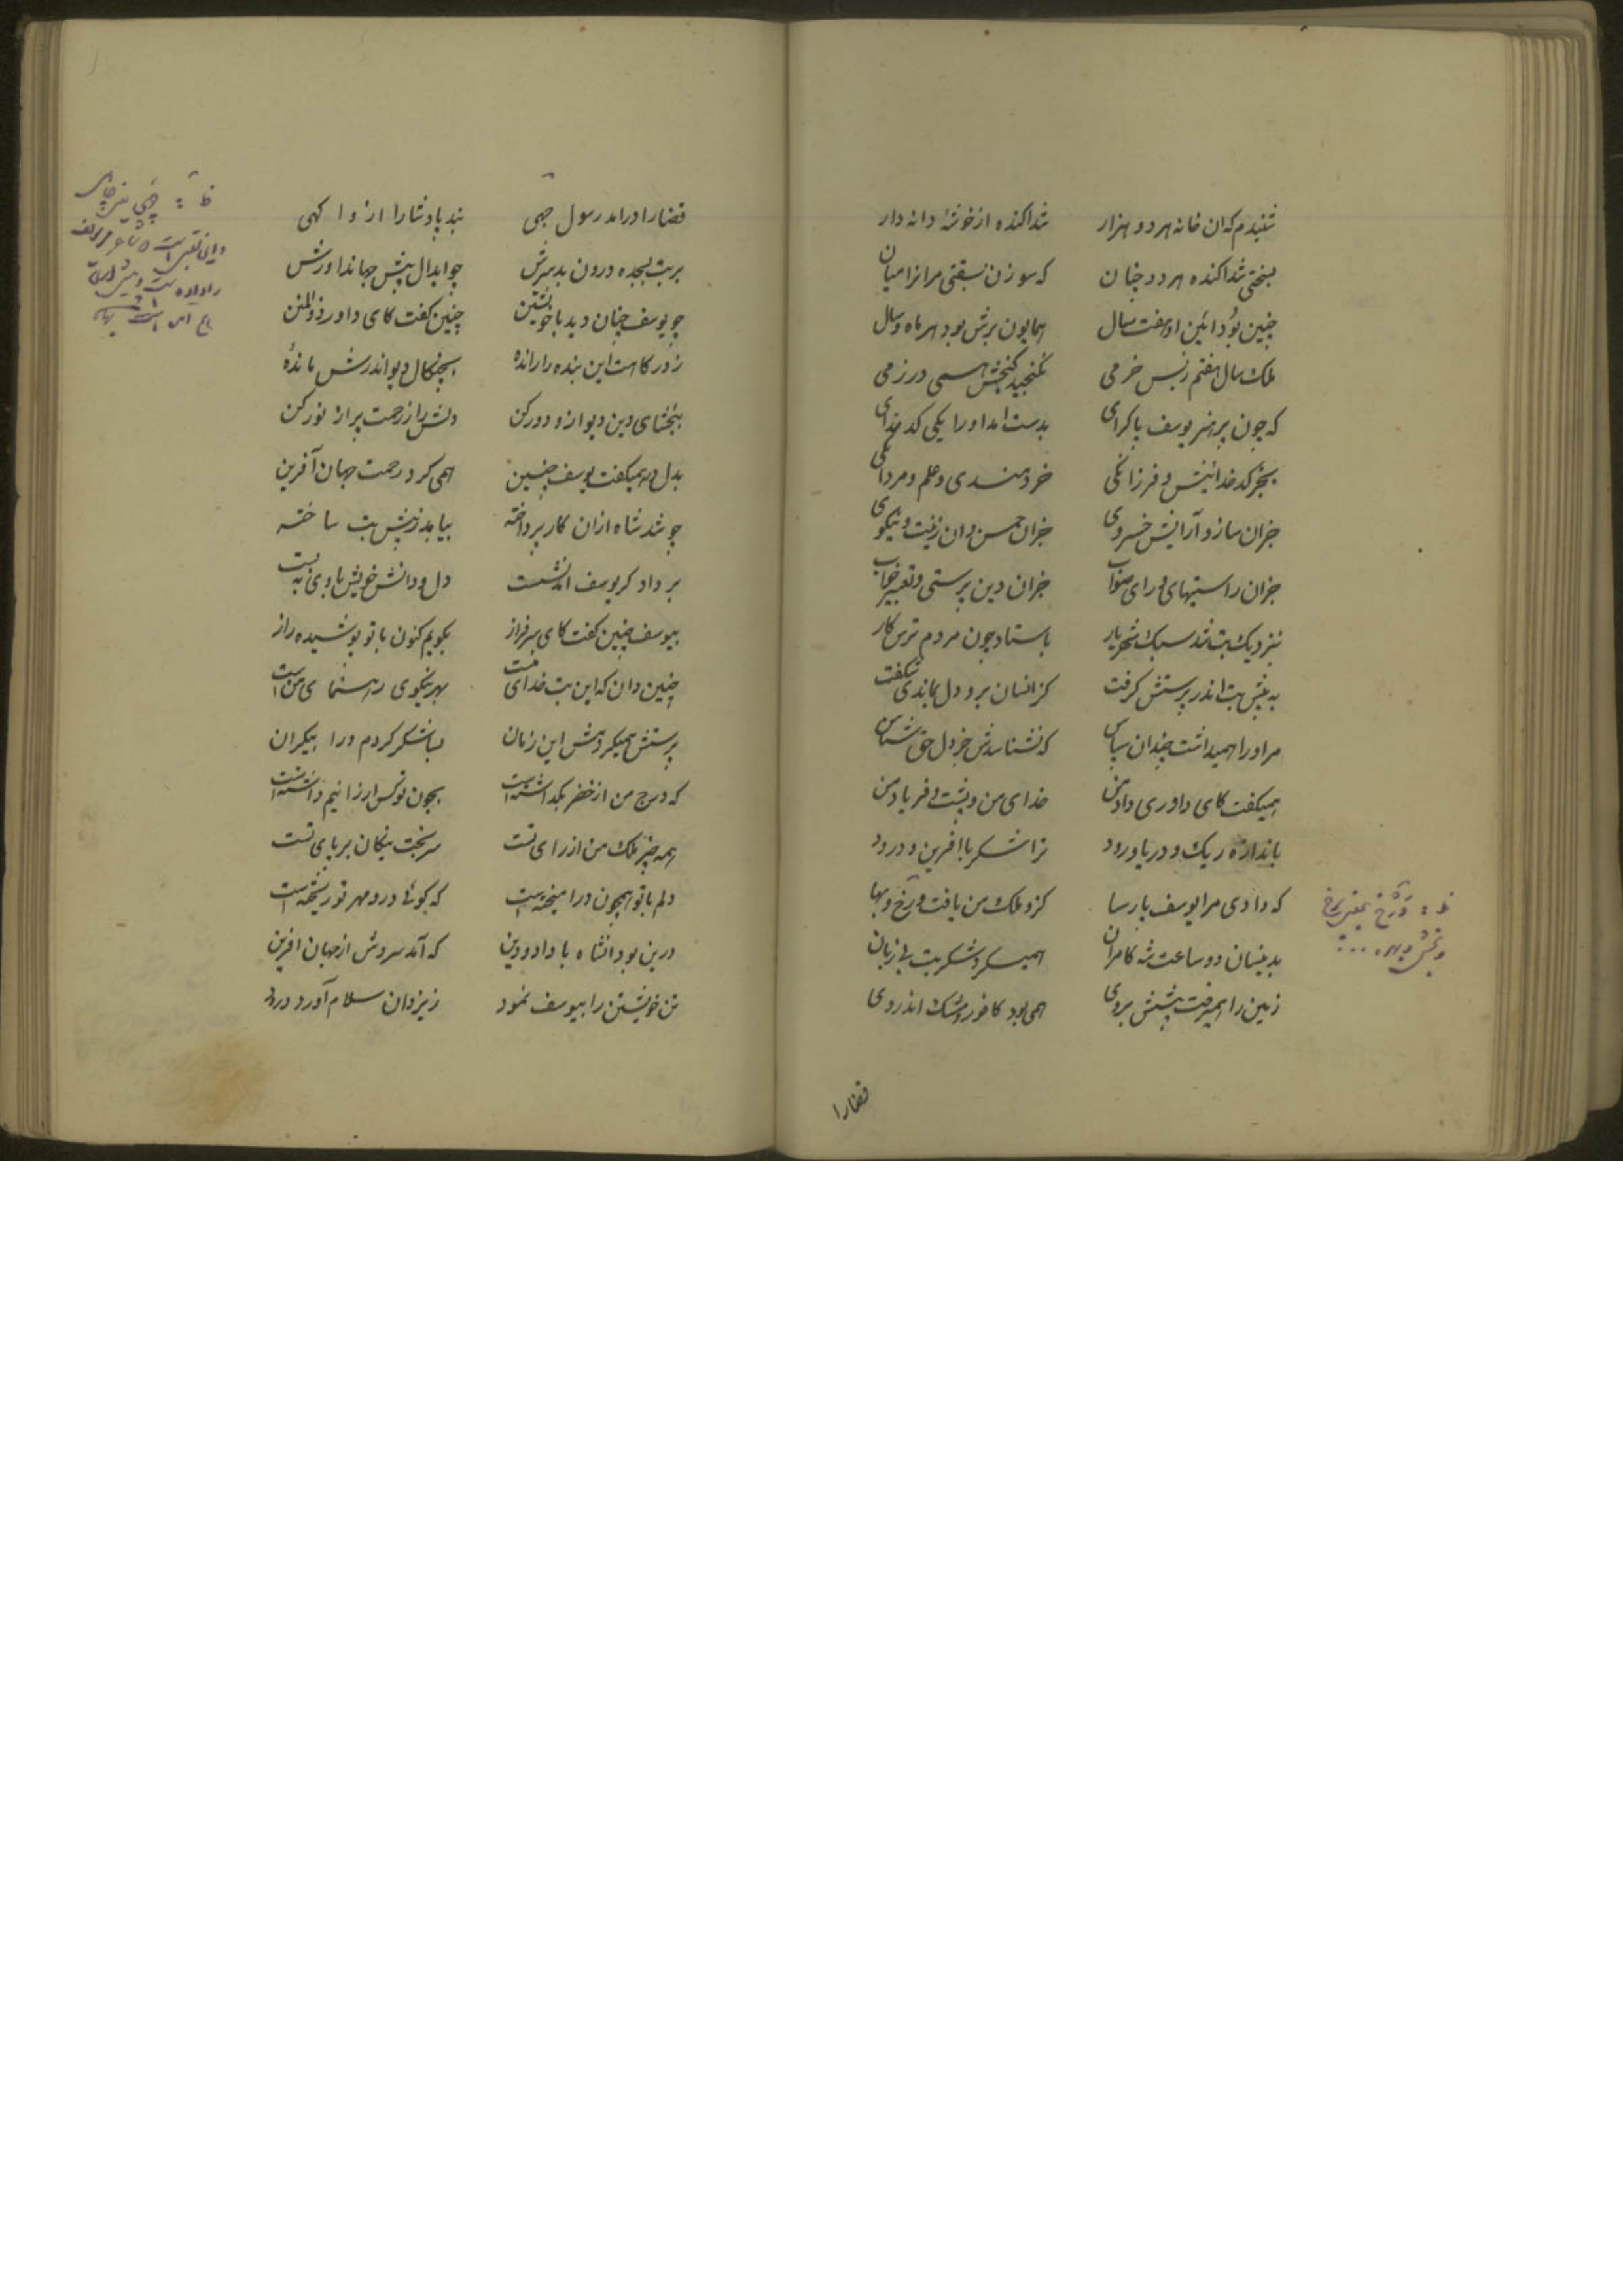 شنیدم کدان خانه هر دو هزار شد اکنده از خوشهٔ دانه دار
بسختی شد اکنده هر دو چنان که سوزن نسفتی مرانرا میان
چنین بود ائین او هفت سال همایون برش بود هر ماه و سال
ملک سال هفتم ز بس خرمی نگنجید گنجش همی در زمی
که چون پر هنر یوسف پاکرای بدست امد او را یکی کدخدای
بجز کدخدائیش و فرزانگی خردمندی و علم و مردانگی
جزان ساز و آرایش خسروی جزان حسن وان زینت و نیکوی
جزان راستیهای و رای صواب جزان دین پرستی و تعبیر خواب
بنزدیک بت شد سبک شهریار باستاد چون مردم ترس کار
به پیش بت اندر پرستش گرفت کزانسان برو دل بماندی شکفت
مر او را همیداشت چندان سپاس که نشناسدش جز دل حق شناس
همیکفت کای داوری داد من خدای من و پشت و فریاد من
باندازه ریک و دریا و رود ترا شکر با افرین و درود
که دادی مرا یوسف پارسا کزو ملک من یافت ورخ و بها
بدینسان دو ساعت شه کامران همیکرد شکر بت بی زبان
زمین را همیرفت پیشش بروی همی بود کافور و مشک اندروی
قضارا
قضارا درامد رسول جهی نبد پادشا را ازو اکهی
بر بت بسجده درون بد سرش چو ابدال پیش جهانداورش
چو یوسف چنان دید با خویشتن چنین کفت کای داور ذوالمنن
ز درکاهت این بنده را رانده بچنکال دیو اندرش مانده
ببخشای وین دیو ازو دور کن دلش را ز رحمت پر از نور کن
بدل در همیکفت یوسف چنین همی کرد رحمت جهان آفرین
چو شد شاه ازان کار پرداخته بیامد ز پیش بت ساخته
بر داد کر یوسف اندر نشست دل و دانش خویش با وی به بست
بیوسف چنین کفت کای سرفراز بکویم کنون با تو پوشیده راز
چنین دان که این بت خدای منست بهر نیکوی رهنمای منست
پرستش همیکردمش این زمان بسا شکر کردم ورا بیکران
که درج من از خضر بکداشتست بچون تو کس ارزانیم داشتست
همه چیز ملک من از رای تست سر بخت نیکان بر پای تست
دلم با تو همچون در امیخته است که کوئی درو مهر تو ریخته است
درین بود انشاه با داد و دین که آمد سروش از جهان افرین
تن خویشتن را بیوسف نمود ز یزدان سلام آورد و درود